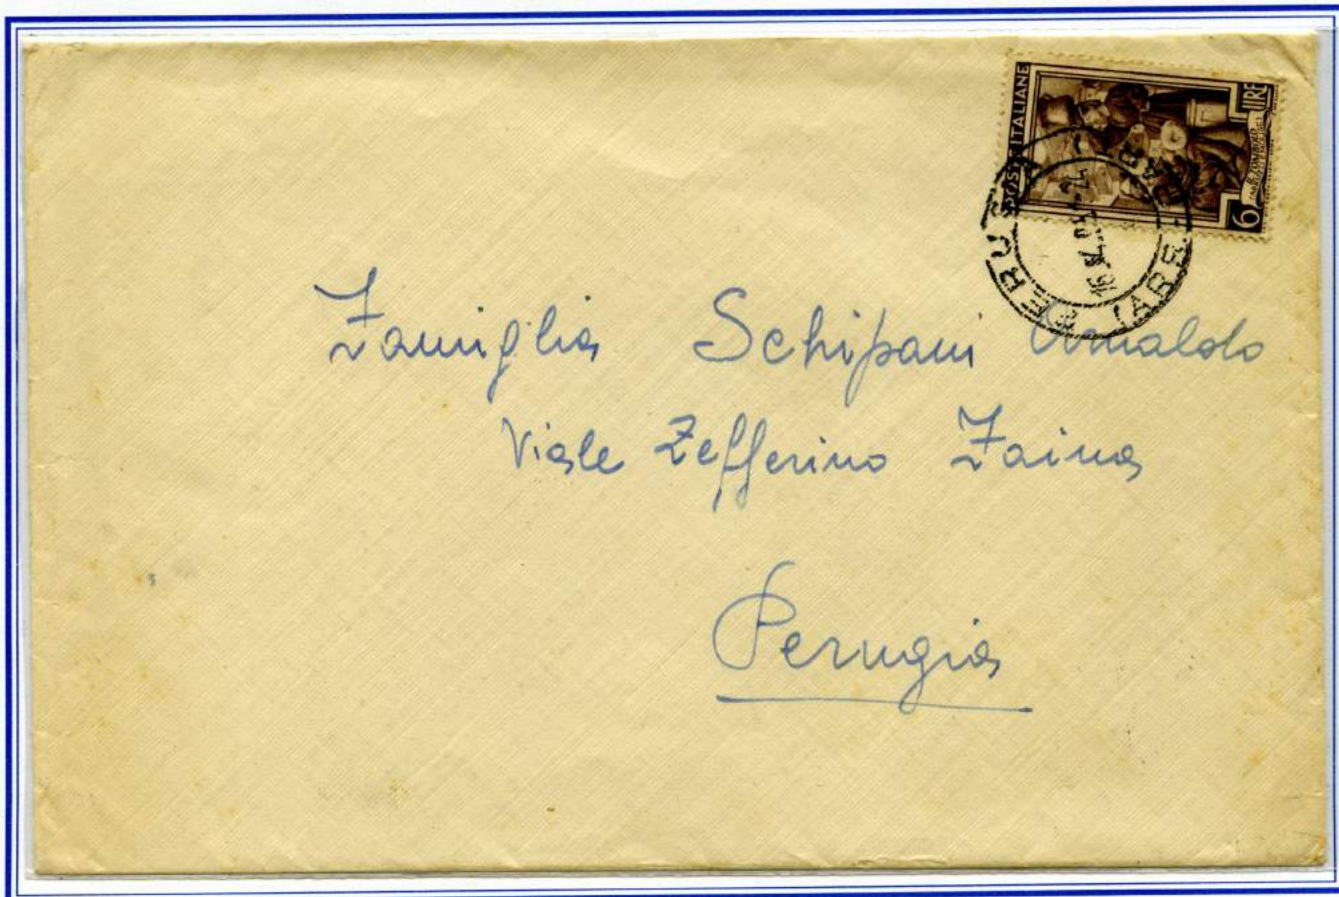 POSTE ITALIANE
LIRE
6
Famiglia Schipani Arnaldo
Viale Zefferino Faina
Perugia